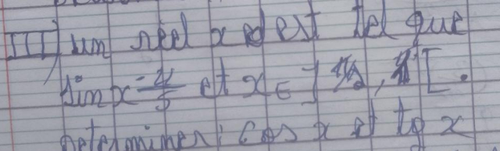 III) un réel x est tel que
sin x = 4/5 et x ∈ ]π/2, π[.
Determiner: cos x et tg x